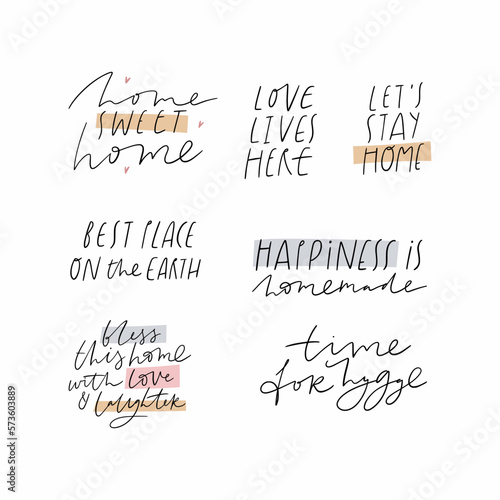 home
SWEET
home
LOVE
LIVES
HERE
LET'S
STAY
HOME
BEST PLACE
ON the EARTH
HAPPINESS is
homemade
bless
this home
with love
& laughter
time
for hygge
Adobe Stock | #573603889